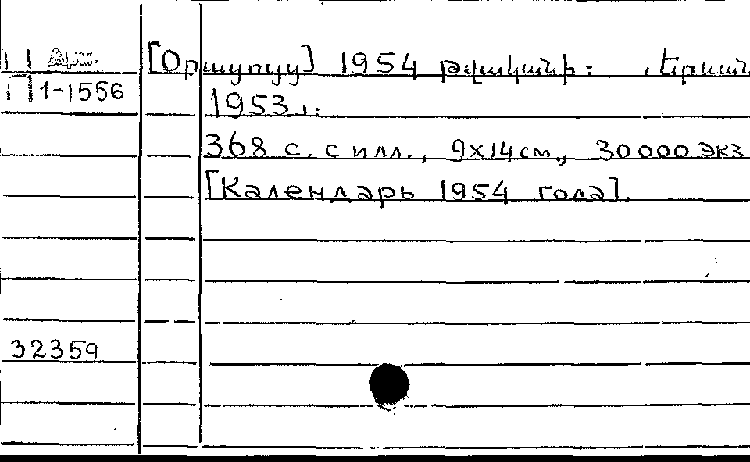 [Օրացույց] 1954 թվականի: Երևան
11-1556
1953 г.
368 с. с илл., 9х14 см, 30000 экз
[Календарь 1954 года].
32359